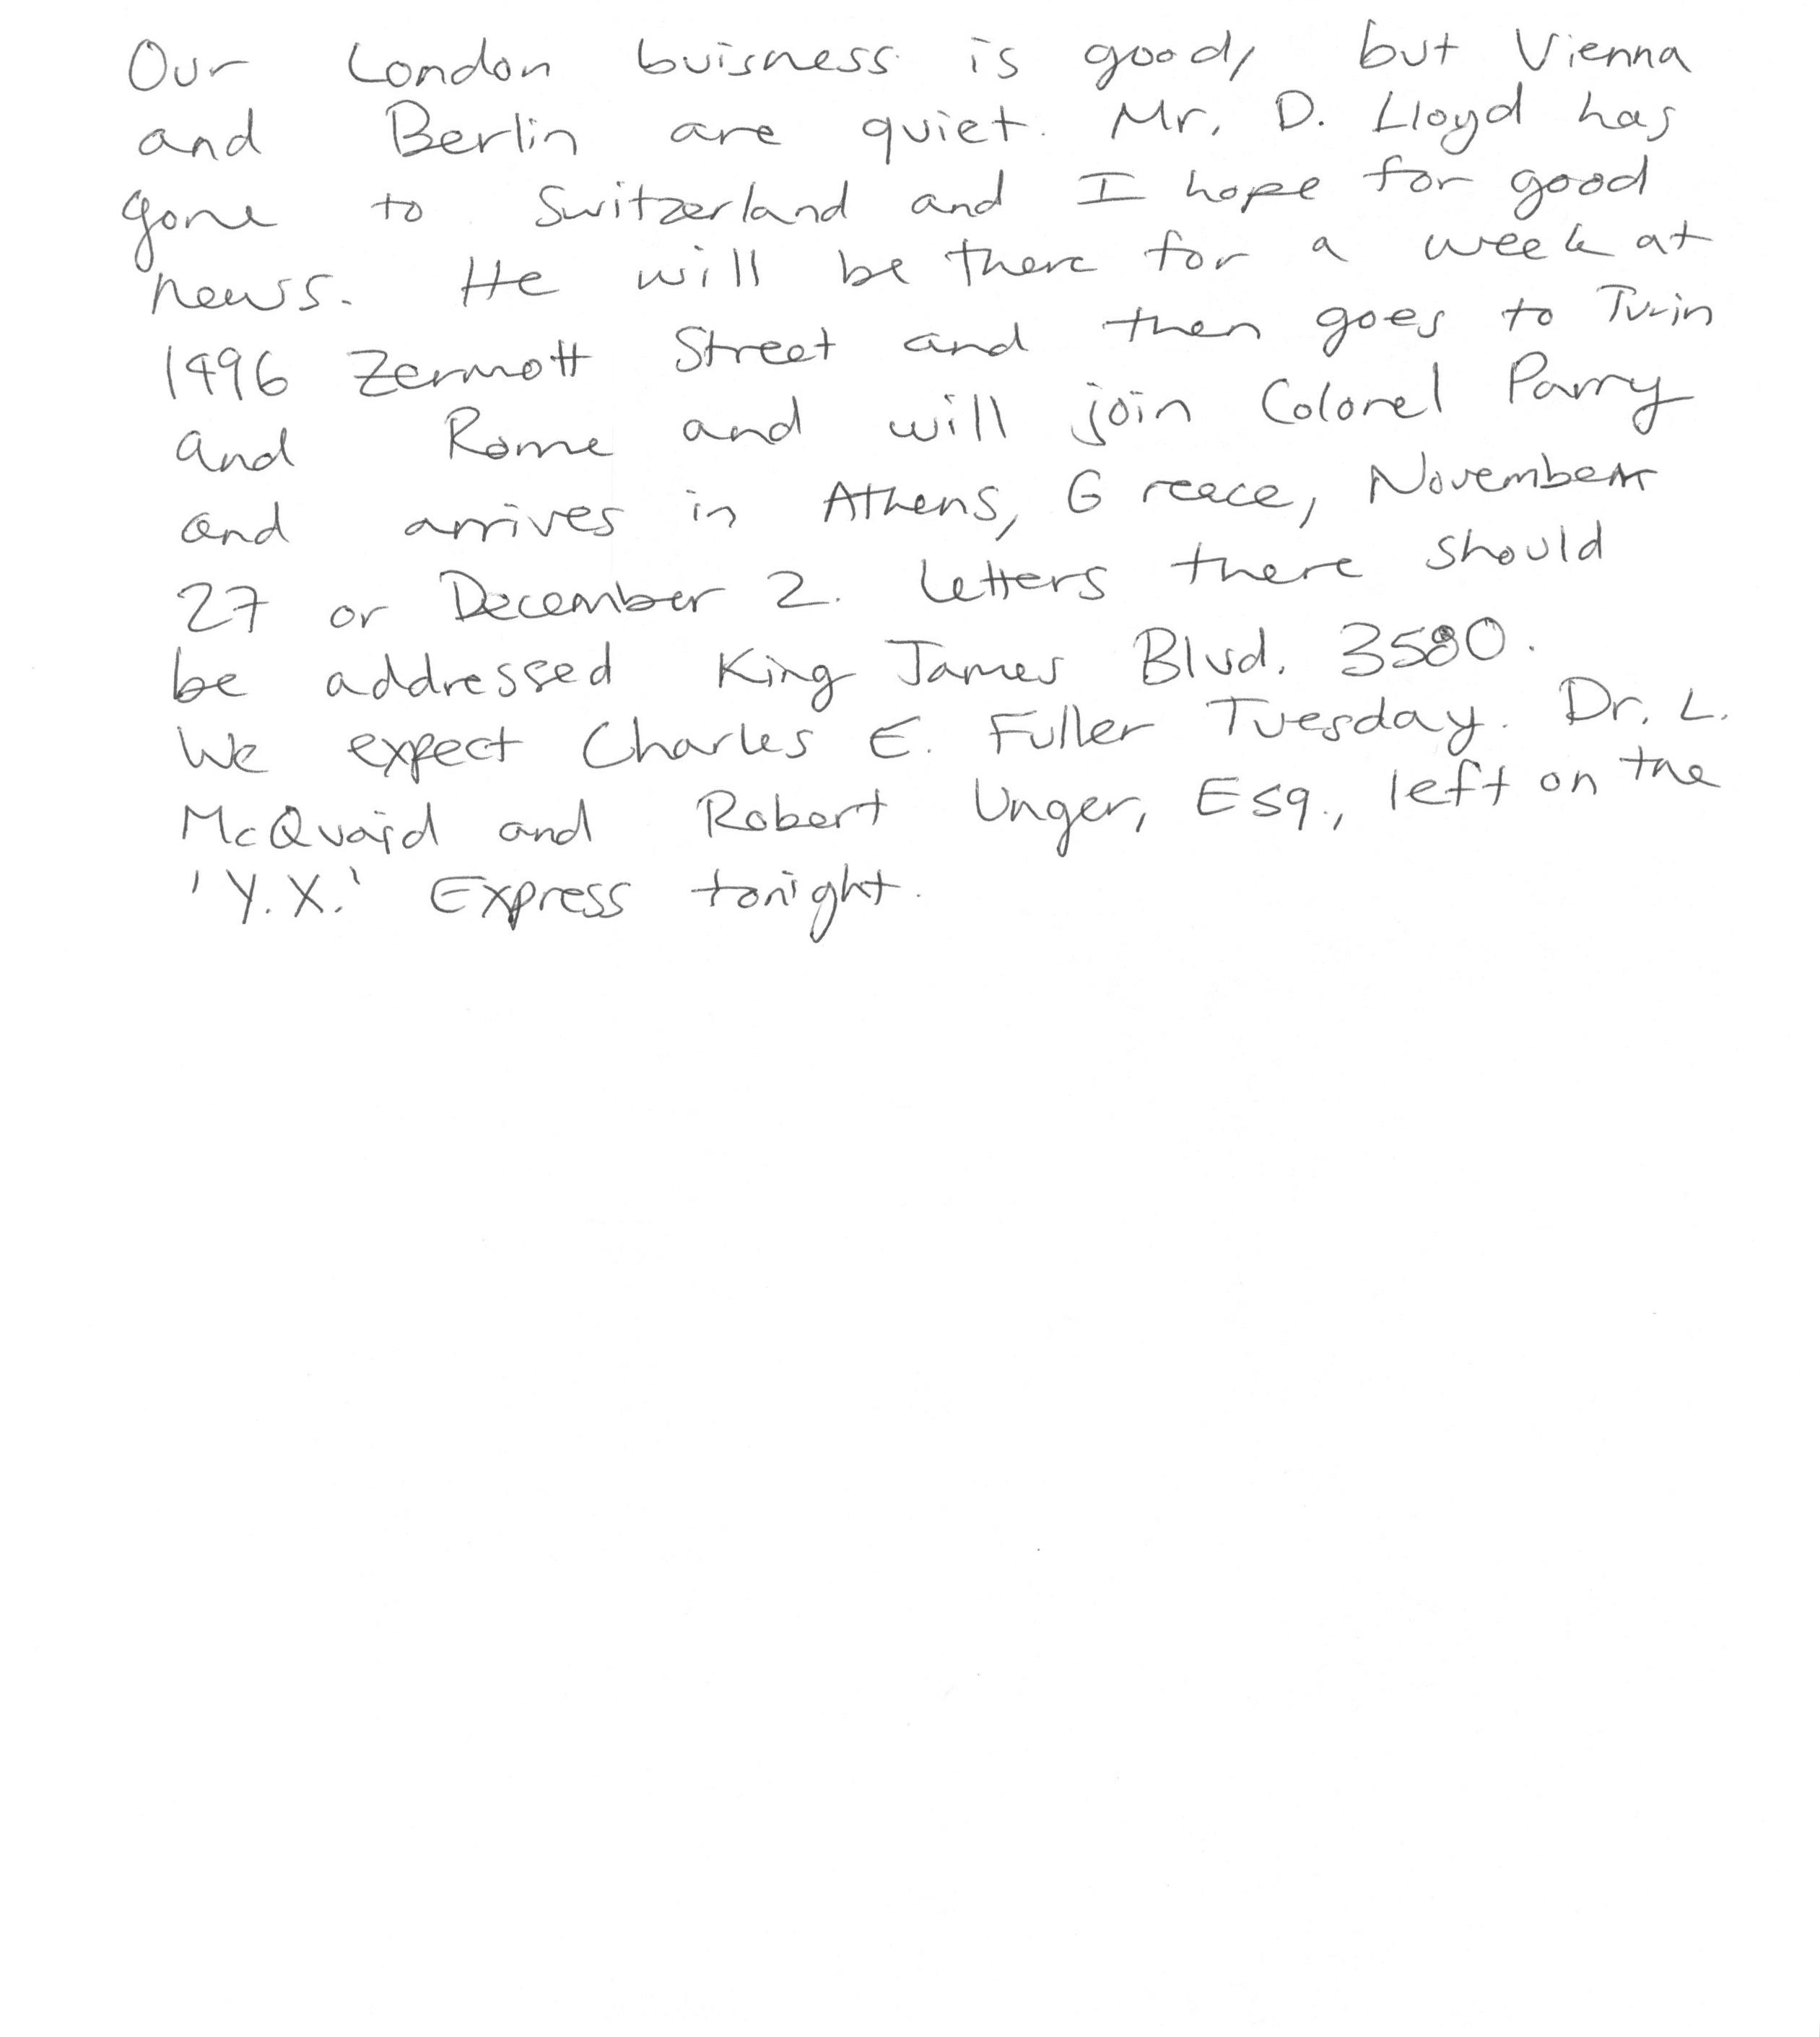 Our London buisness is good, but Vienna
and Berlin are quiet. Mr. D. Lloyd has
gone to Switzerland and I hope for good
news. He will be there for a week at
1496 Zermott Street and then goes to Turin
and Rome and will join Colonel Parry
and arrives in Athens, Greece, November
27 or December 2. Letters there should
be addressed King James Blvd. 3580.
We expect Charles E. Fuller Tuesday. Dr. L.
McQuaid and Robert Unger, Esq., left on the
'Y.X.' Express tonight.